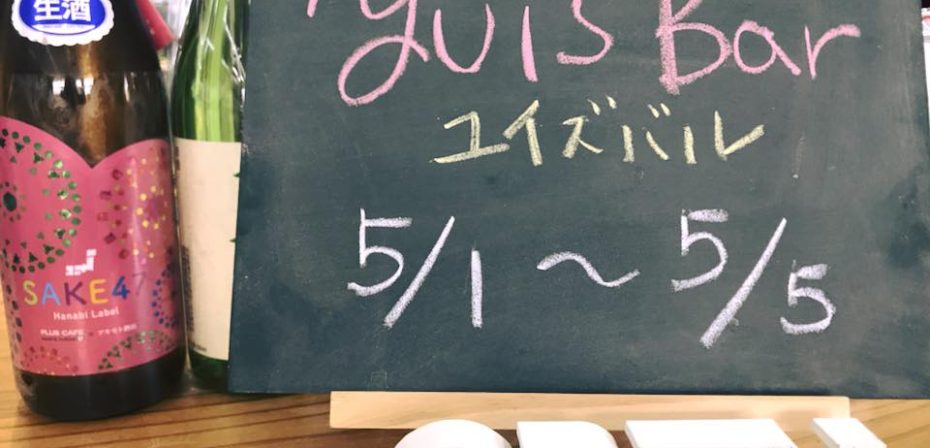 生酒
SAKE47
Hanabi Label
PLUS CAFE
yuis Bar
ユイズバル
5/1〜5/5